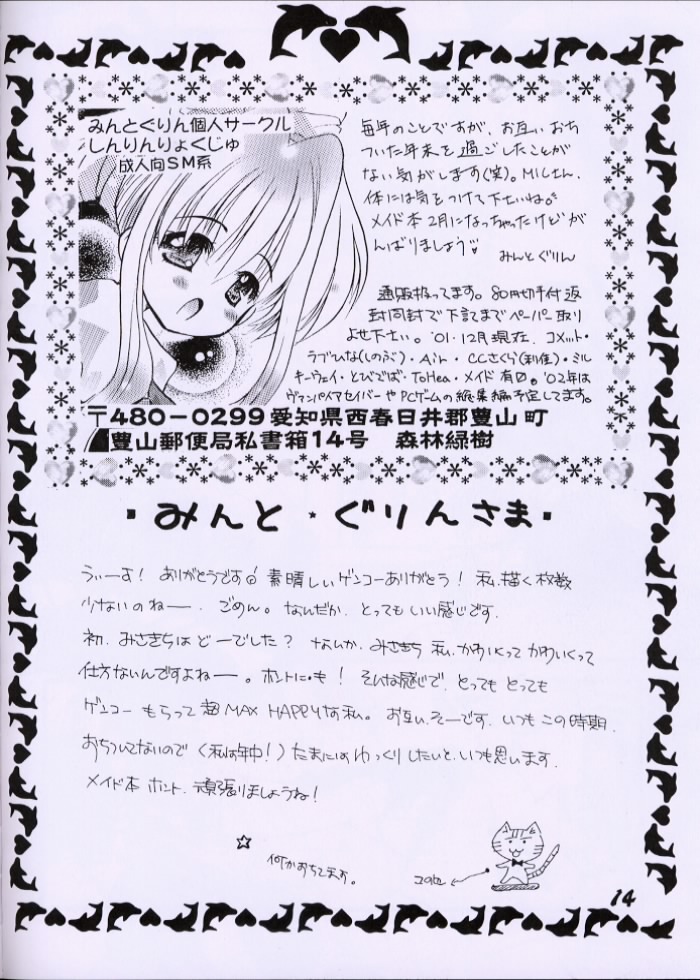 みんとぐりん個人サークル
しんりんりょくじゅ
成人向SM系
毎年のことですが、お互いおち
ついた年末を過ごしたことが
ない気がします(笑)。MICさん、
体には気をつけて下さいね。
メイド本2月になっちゃったけどが
んばりましょう
みんとぐりん
通販扱ってます。80円切手付返
封同封で下記までペーパー取り
よせ下さい。'01・12月現在、コメット・
ラブひな(しのぶ)・Air・CCさくら(利佳)・ミル
キーウェイ・とびでば・ToHea・メイド 有り。'02年は
ヴァンパイアセイバーやPCゲームの総集編予定してます。
〒480-0299 愛知県西春日井郡豊山町
豊山郵便局私書箱14号 森林緑樹
みんと・ぐりんさま
うぃーす! ありがとうです! 素晴しいゲンコーありがとう! 私、描く枚数
少ないのねー、ごめん。なんだか、とってもいい感じです。
初、みさきちはどーでした? なんか、みさきち 私、かわいくって かわいくって
仕方ないんですよねー。ホントにも! そんな感じで、とっても とっても
ゲンコー もらって 超MAX HAPPYな私。お互い、そーです、いつもこの時期、
おちついてないので(私は年中!)たまにはゆっくりしたいと、いつも思います。
メイド本 ホント、頑張りましょうね!
☆
何かおちてます。
14